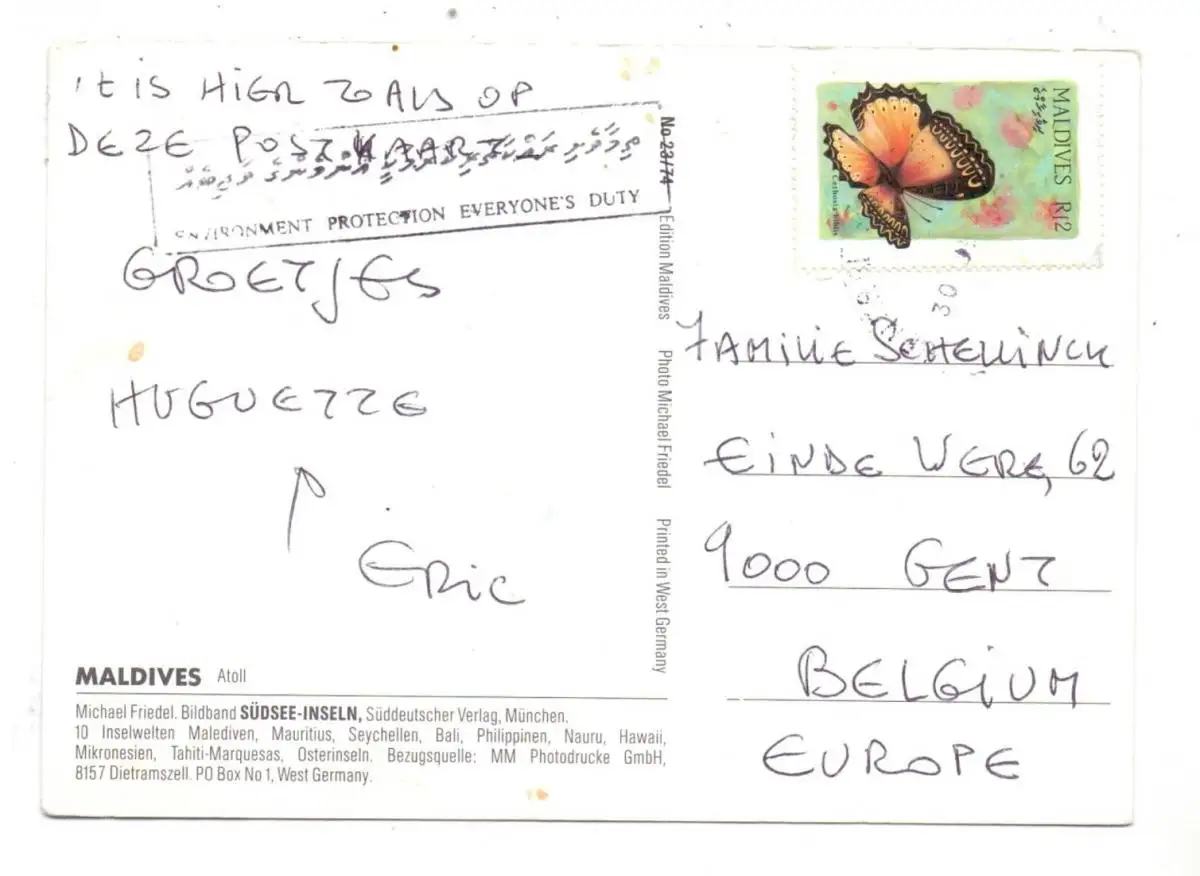 't is HiER ZOALS OP
DEZE POSTKAART
ENVIRONMENT PROTECTION EVERYONE'S DUTY
GROETJES
HUGUETTE
ERiC
MALDIVES Atoll
Michael Friedel. Bildband SÜDSEE-INSELN, Süddeutscher Verlag, München.
10 Inselwelten Malediven, Mauritius, Seychellen, Bali, Philippinen, Nauru, Hawaii,
Mikronesien, Tahiti-Marquesas, Osterinseln. Bezugsquelle: MM Photodrucke GmbH,
8157 Dietramszell. PO Box No 1, West Germany.
No 23/74 Edition Maldives Photo Michael Friedel Printed in West Germany
MALDIVES Rf2
30
FAMILIE SCHELLINCK
EiNDE WERE, 62
9000 GENT
BELGiUM
EUROPE